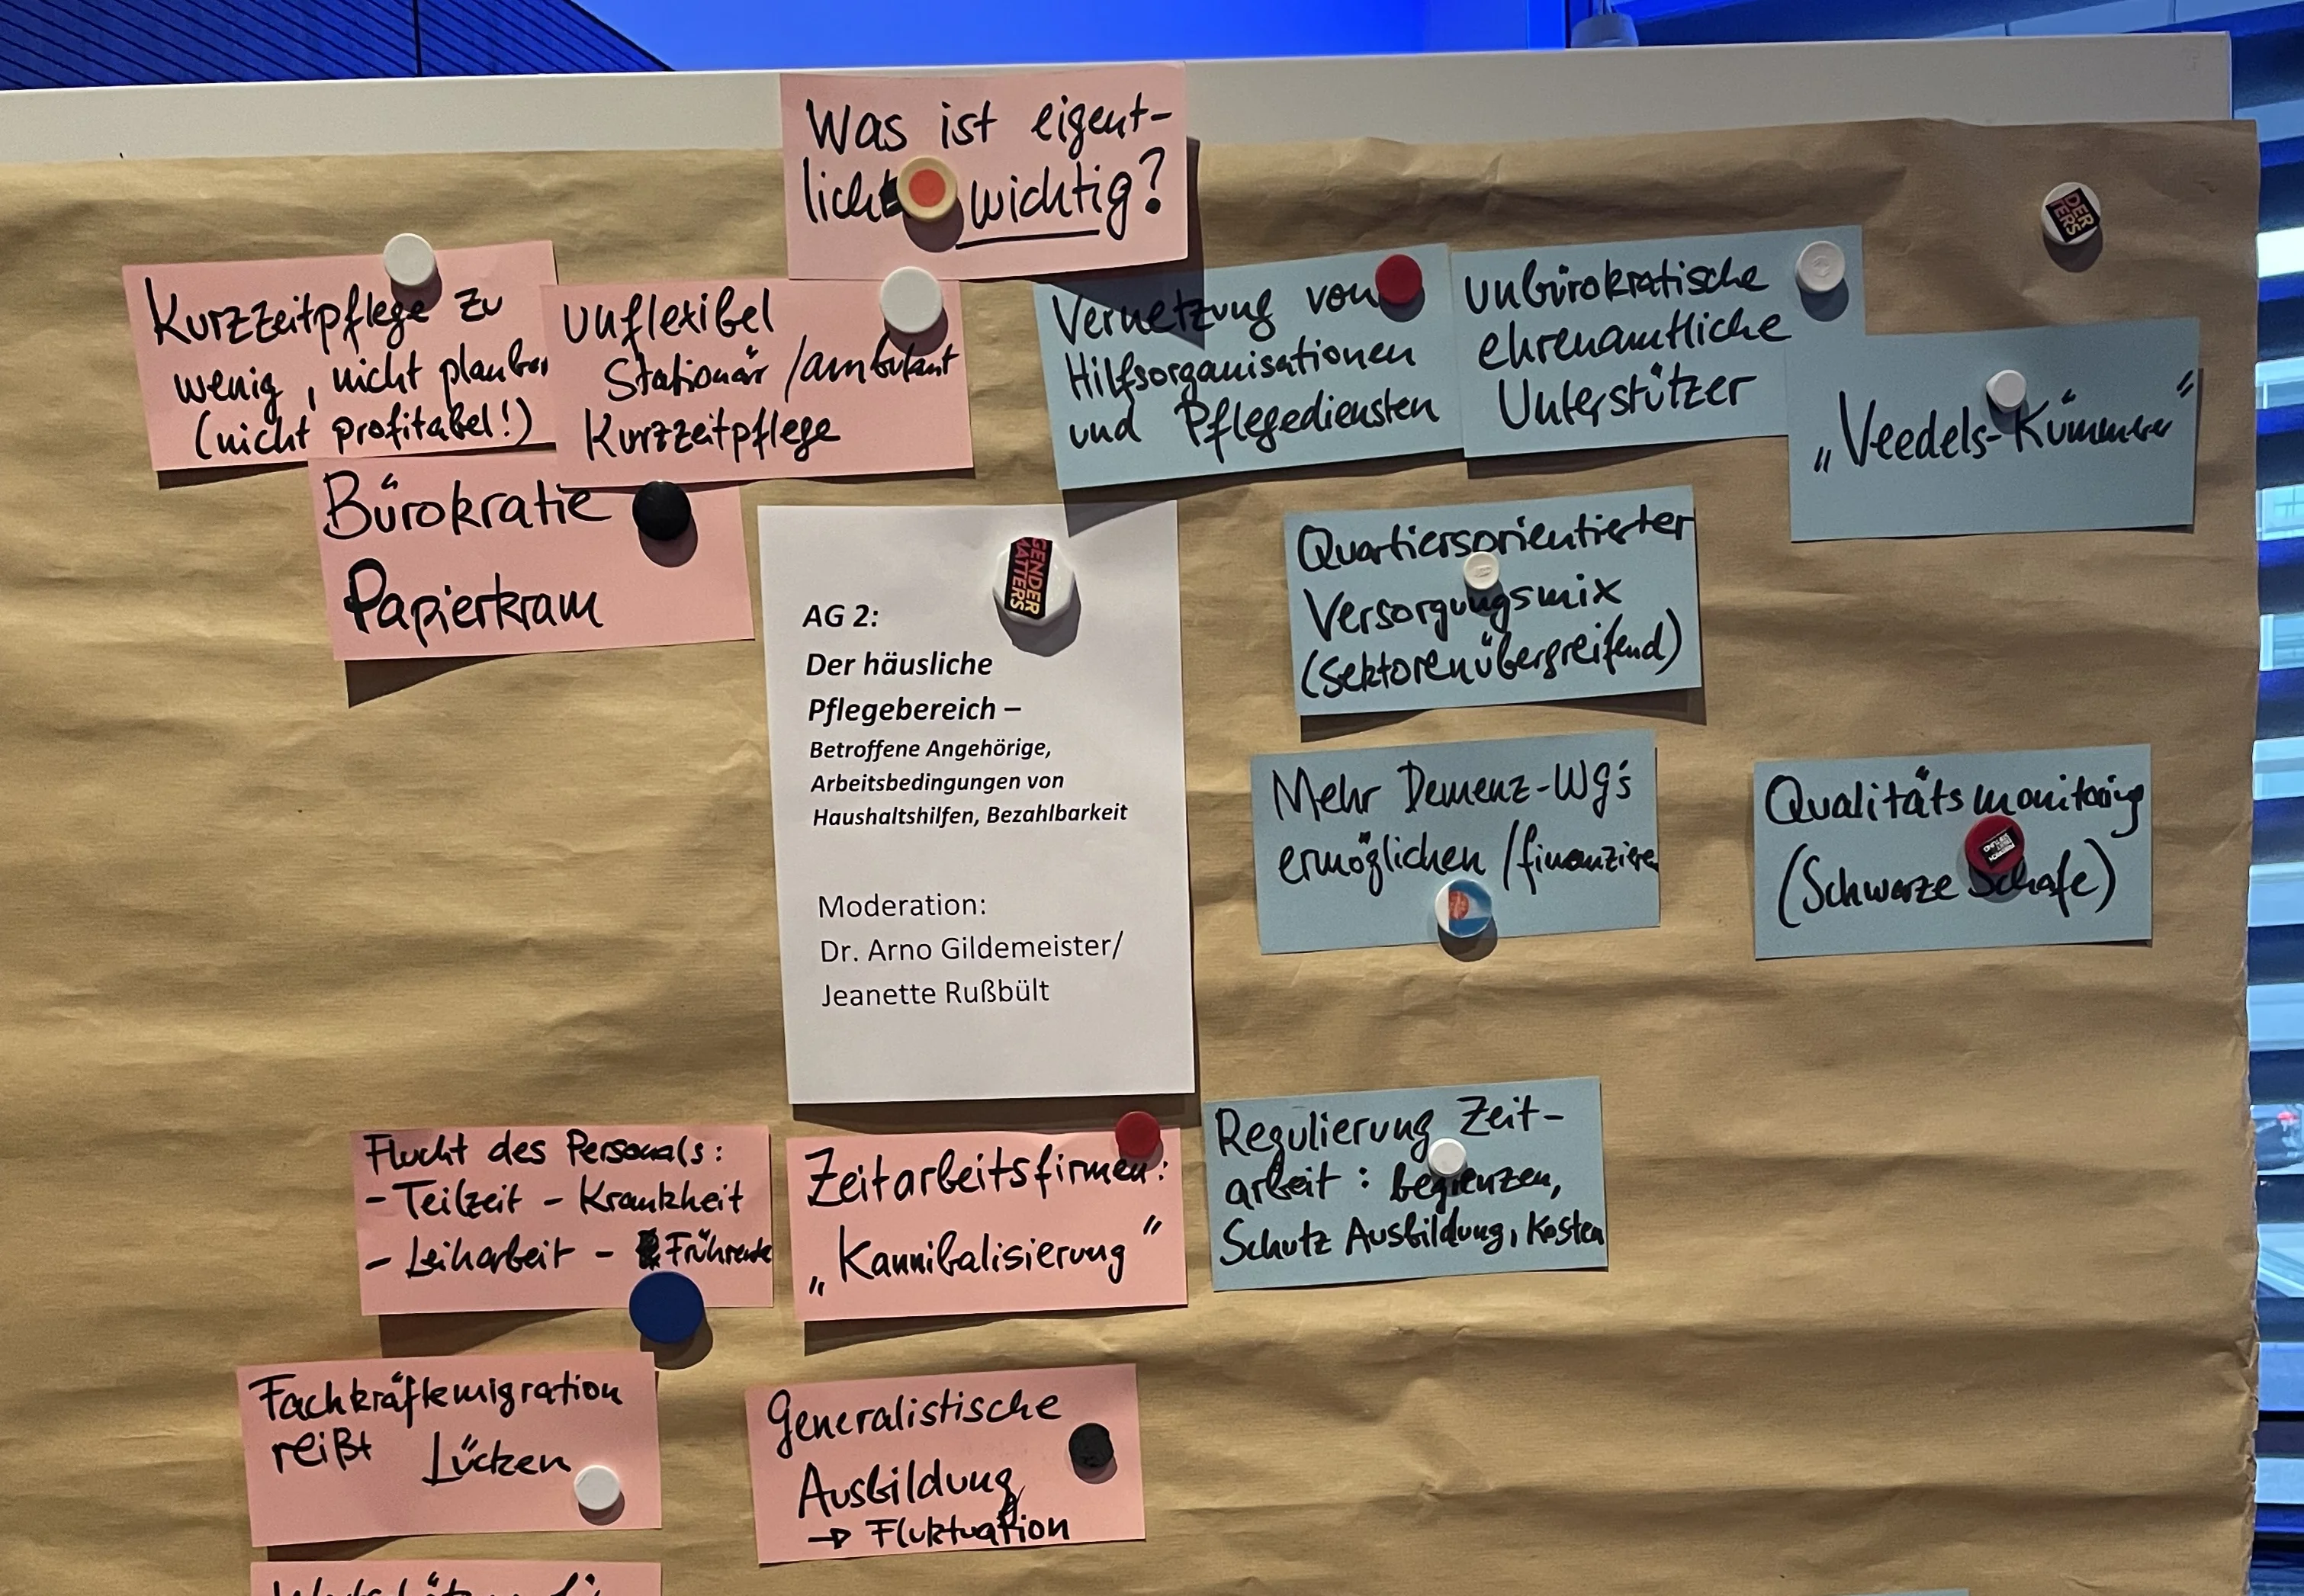 Was ist eigent-
licht wichtig?
Kurzzeitpflege zu
wenig, nicht planbar
(nicht profitabel!)
unflexibel
Stationär/ambulant
Kurzzeitpflege
Bürokratie
Papierkram
Vernetzung von
Hilfsorganisationen
und Pflegediensten
unbürokratische
ehrenamtliche
Unterstützer
„Veedels-Kümmerer“
DER
TERS
Quartiersorientierter
Versorgungsmix
(sektorenübergreifend)
GENDER
MATTERS
AG 2:
Der häusliche
Pflegebereich –
Betroffene Angehörige,
Arbeitsbedingungen von
Haushaltshilfen, Bezahlbarkeit
Moderation:
Dr. Arno Gildemeister/
Jeanette Rußbült
Mehr Demenz-WG's
ermöglichen/finanzieren
Qualitätsmonitoring
(Schwarze Schafe)
Flucht des Personals:
- Teilzeit - Krankheit
- Leiharbeit - Frührente
Zeitarbeitsfirmen:
„Kannibalisierung“
Regulierung Zeit-
arbeit: begrenzen,
Schutz Ausbildung, Kosten
Fachkräftemigration
reißt Lücken
Generalistische
Ausbildung
→ Fluktuation